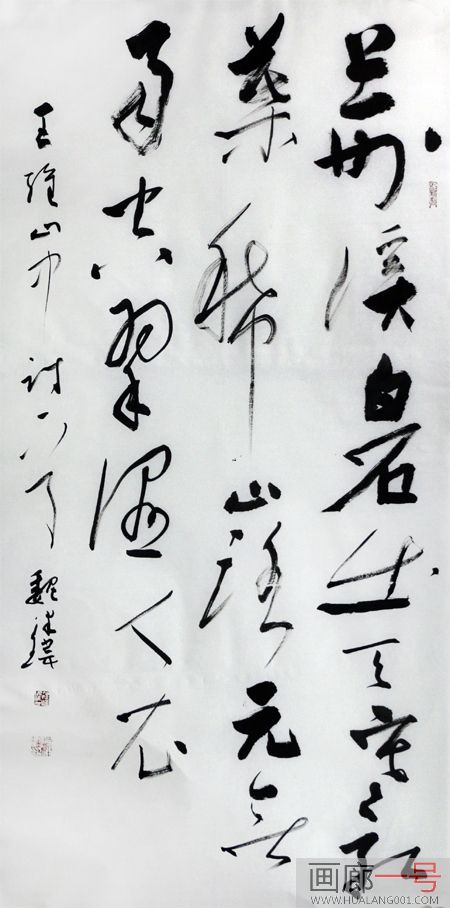 荆溪白石出天寒紅
葉稀山路元無
雨空翠濕人衣
王維山中詩一首 魏
画廊一号
WWW.HUALANG001.COM